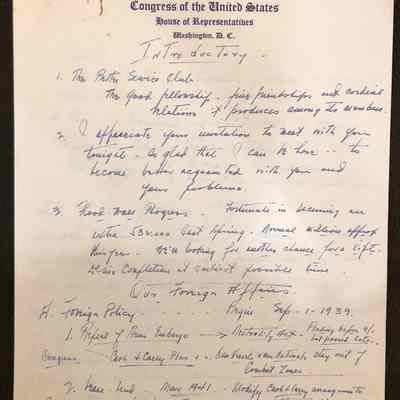 Congress of the United States
House of Representatives
Washington, D. C.
Introductory -
1. The Service Club.
The good fellowship - fine friendships and cordial
relations it produces among the members.
2. I appreciate your invitation to meet with you
tonight - am glad that I can be here -- to
become better acquainted with you and
your problems.
3. Flood Wall Progress - Fortunate in becoming an
extra last Spring. Normal million approp
this year. We're looking for another chance for a lift.
Completion at earliest possible time.
Our Foreign Affairs
4. Foreign Policy Sep - 1 - 1939.
1. Repeal of Arms Embargo → Neutrality Act -
Congress Cash & Carry Plan stay out of
Combat Zones
2. - Modify Cash & Carry arrangements